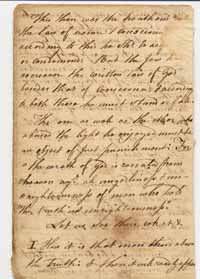 This then was the heathens
the law of nature & conscience
according to this he shd be acq
or condemned. And the jew
the written law of god
besides that of conscience & accor
to both these he must stand or fall.
The one as well as the other who
abused the light he enjoyed must be
an object of just punishment: For
the wrath of god is reveal'd from
heaven agst all ungodliness &
unrighteousness of men who hold
the truth in unrighteousness
Let us see then what
I. This it is that more then
the truth: &